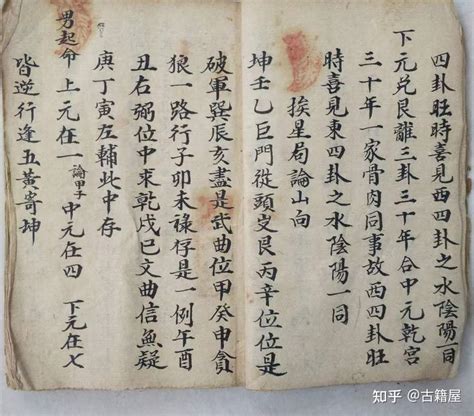 四卦旺時喜見西四卦之水陰陽一同
下元兌艮離三卦三十年合中元乾宮
三十年一家骨肉同事故西四卦旺
時喜見東四卦之水陰陽一同
挨星局論山向
坤壬乙巨門從頭艮丙辛位位是
破軍巽辰亥盡是武曲位甲癸申貪
狼一路行子卯未祿存是一例午酉
丑右弼位中來乾戌巳文曲信魚疑
庚丁寅左輔此中存
男起命上元在一論甲子中元在四 下元在七
皆逆行逢五黃寄坤
知乎 @古籍屋